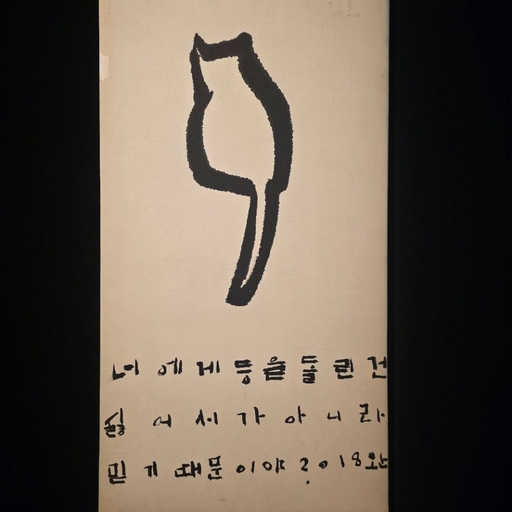 너에게 등을 돌린 건
싫어서가 아니라
믿기 때문이야 2018